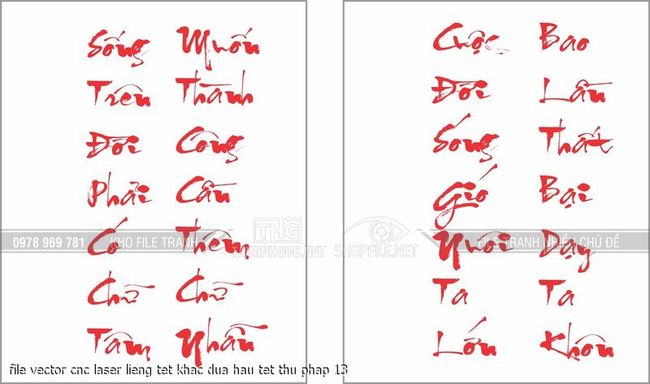 Sống Muốn
Trên Thành
Đời Công
Phải Cần
Có Thêm
Chữ Chữ
Tâm Nhẫn
Cuộc Bao
Đời Lần
Sóng Thất
Gió Bại
Nuôi Dạy
Ta Ta
Lớn Khôn
0978 969 781
KHO FILE TRANH
THG
THINKGOC.NET
SHOPFILE.NET
TRANH NHIỀU CHỦ ĐỀ
file vector cnc laser lieng tet khac dua hau tet thu phap 13